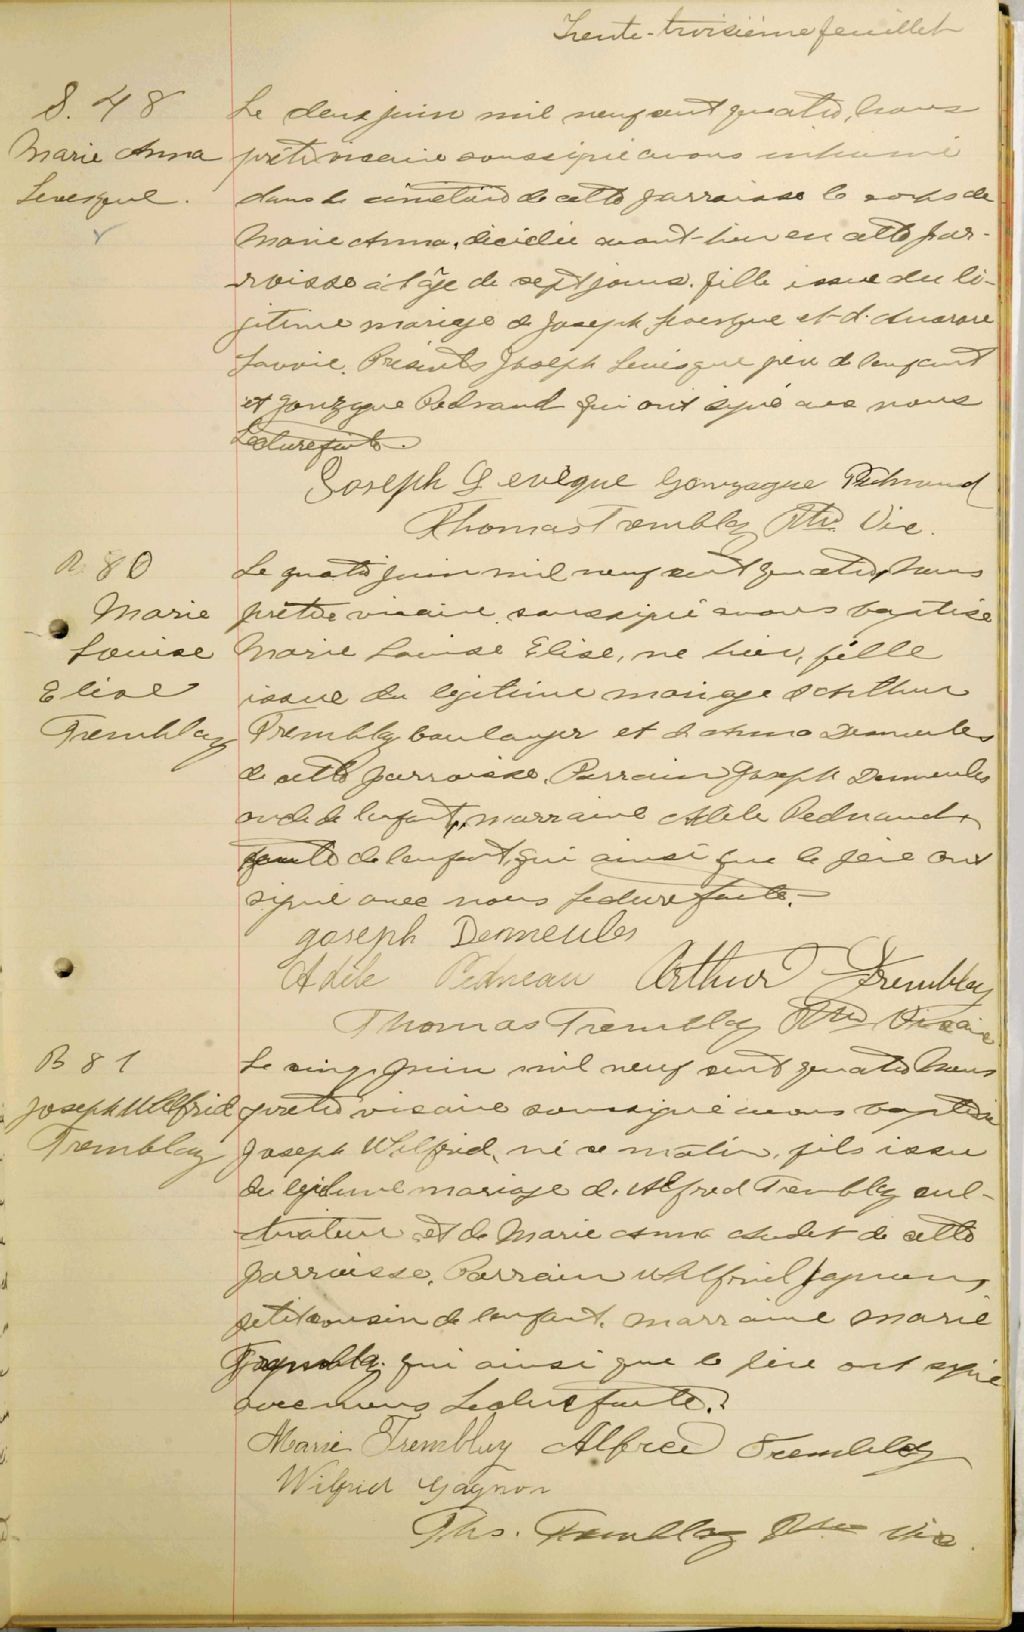 Trente-troisième feuillet
S. 48
Marie Anna
Levesque.
Le deux juin mil neuf cent quatre, nous
prêtre vicaire soussigné avons inhumé
dans le cimetière de cette parroisse le corps de
Marie Anna, décédée avant-hier en cette par-
roisse à l'âge de sept jours. fille issue du lé-
gitime mariage de Joseph Levesque et d. Aurore
Savoie. Présents Joseph Levesque père de l'enfant
et Gonzague Pednaud qui ont signé avec nous
Lecture faite.
Joseph Levêque Gonzague Pednaud
Thomas Tremblay Ptre Vic.
B. 80
Marie
Louise
Elise
Tremblay
Le quatre juin mil neuf cent quatre, nous
prêtre vicaire soussigné avons baptisé
Marie Louise Elise, né hier, fille
issue du légitime mariage d'Arthur
Tremblay boulanger et d'Anna Demeules
de cette parroisse. Parrain Joseph Demeules
oncle de l'enfant, marraine Adèle Pednaud,
tante de l'enfant, qui ainsi que le père ont
signé avec nous lecture faite.
Joseph Demeules
Adèle Pedneau Arthur Tremblay
Thomas Tremblay Ptre Vicaire
B 81
Joseph Wilfrid
Tremblay
Le cinq juin mil neuf cent quatre nous
prêtre vicaire soussigné avons baptisé
Joseph Wilfrid, né ce matin, fils issu
du légitime mariage d. Alfred Tremblay cul-
tivateur et de Marie Anna Audet de cette
parroisse. Parrain Wilfrid Gagnon,
petit cousin de l'enfant. marraine Marie
Tremblay. qui ainsi que le père ont signé
avec nous Lecture faite.
Marie Tremblay Alfred Tremblay
Wilfrid Gagnon
Ths. Tremblay Ptre Vic.